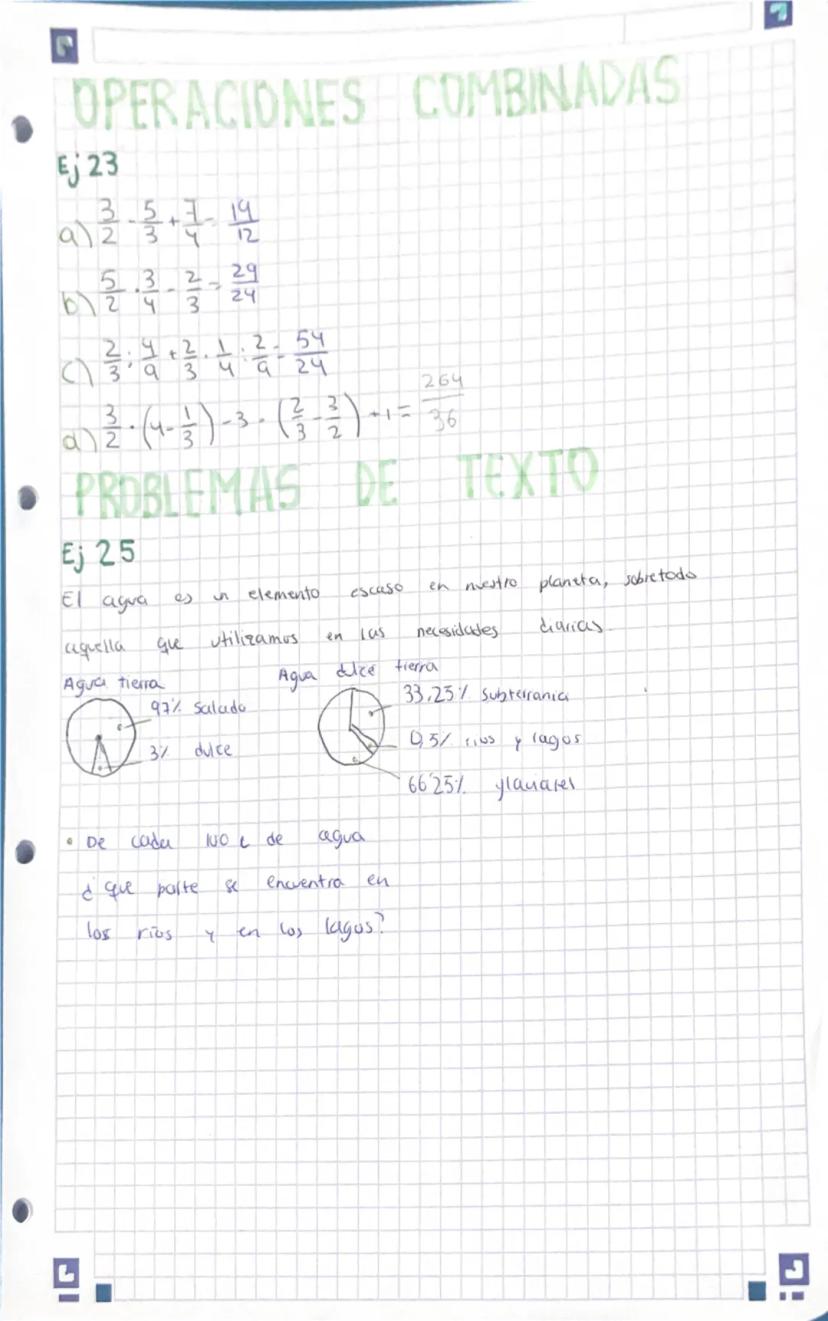 OPERACIONES COMBINADAS
Ej 23
a) 3/2 - 5/3 + 7/4 = 19/12
b) 5/2 · 3/4 - 2/3 = 29/24
c) 2/3 : 4/9 + 2/3 · 1/4 : 2/9 = 54/24
d) 3/2 · (4 - 1/3) - 3 · (2/3 - 3/2) + 1 = 264/36
PROBLEMAS DE TEXTO
Ej 25
El agua es un elemento escaso en nuestro planeta, sobretodo
aquella que utilizamos en las necesidades diarias.
Agua tierra
97% Salada
3% dulce
Agua dulce tierra
33,25% Subterrania
0,5% rios y lagos
66'25% glaciares
• De cada 100 L de agua
¿ que parte se encuentra en
los ríos y en los lagos?